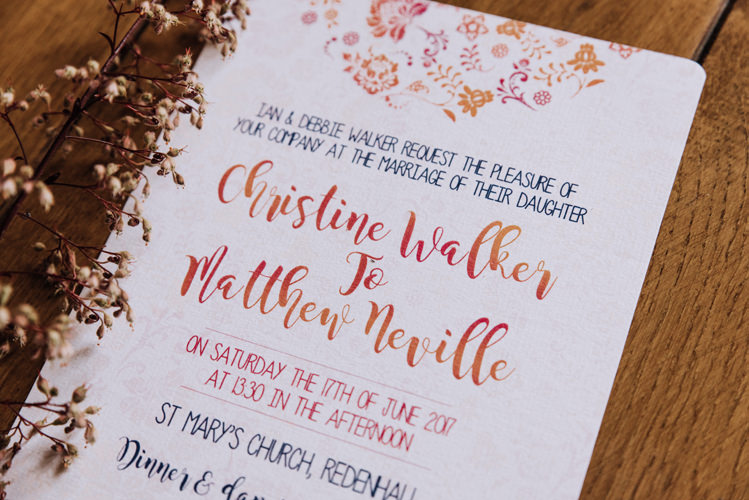 IAN & DEBBIE WALKER REQUEST THE PLEASURE OF
YOUR COMPANY AT THE MARRIAGE OF THEIR DAUGHTER
Christine Walker
To
Matthew Neville
ON SATURDAY THE 17TH OF JUNE 2017
AT 13:30 IN THE AFTERNOON
ST MARY'S CHURCH, REDENHALL
Dinner &